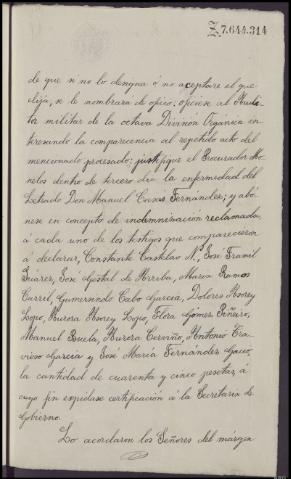 Z.7.644.314
de que si no lo designa ó no aceptare el que
elija, se le nombrara de oficio; oficiese al Audi-
tor militar de la octava Division Organica in-
teresando la comparecencia al repetido acto del
mencionado procesado; justifique el Procurador
dentro de tercero dia la enfermedad del
Letrado Don Manuel Casas Fernández; y abó-
nese en concepto de indemnizacion reclamada,
á cada uno de los testigos que comparecieron
á declarar, Constante Castelao N., José Framil
Suárez, José Gestal de Arriba, Maria Ramos
Carril, Gumersindo Cabo Garcia, Dolores
Lopo, Aurora Lopo, Flora Gómez Piñeiro,
Manuel Buela, Aurora Cerviño, Antonio Tra-
vieso Garcia y José Maria Fernández
la cantidad de cuarenta y cinco pesetas á
cuyo fin expidase certificación á la Secretaria de
Gobierno.
Lo acordaron los Señores del márgen